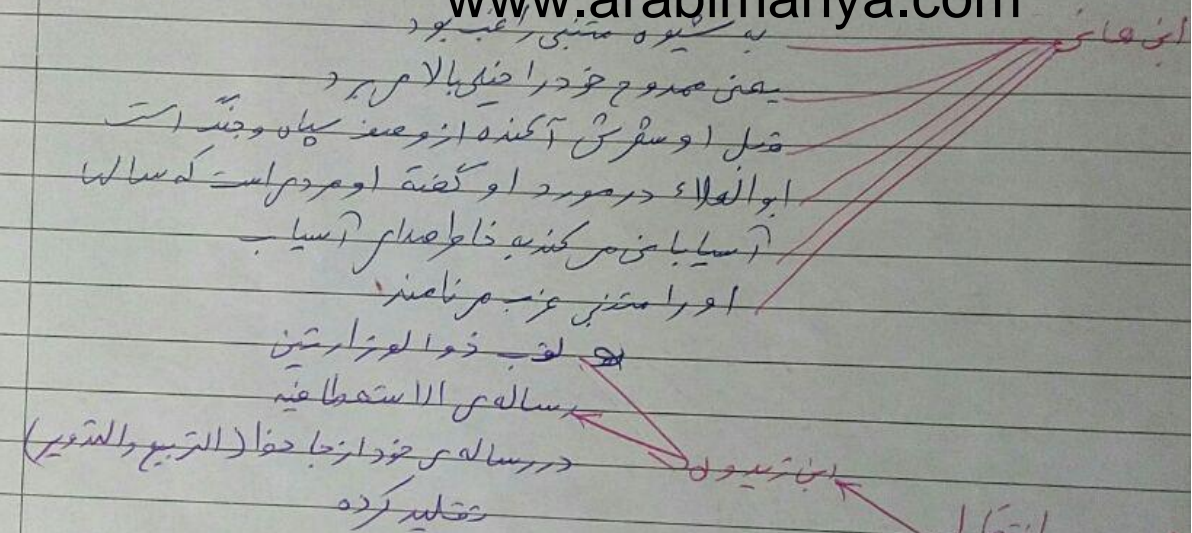 www.arabimahya.com
ابن هانی
به شیوه متنبی راغب بود
یعنی ممدوح خود را خیلی بالا می برد
مثل او شعرش آکنده از وصف سپاه و جنگ است
ابوالعلاء در مورد او گفته او مردی است که سالها
آسیابانی می کند به خاطر صدای آسیاب
او را متنبی غرب می نامند
لقب ذوالوزارتین
رساله ی الاستعطافیه
ابن زیدون
در رساله ی خود از جاحظ (التربیع والتدویر)
تقلید کرده